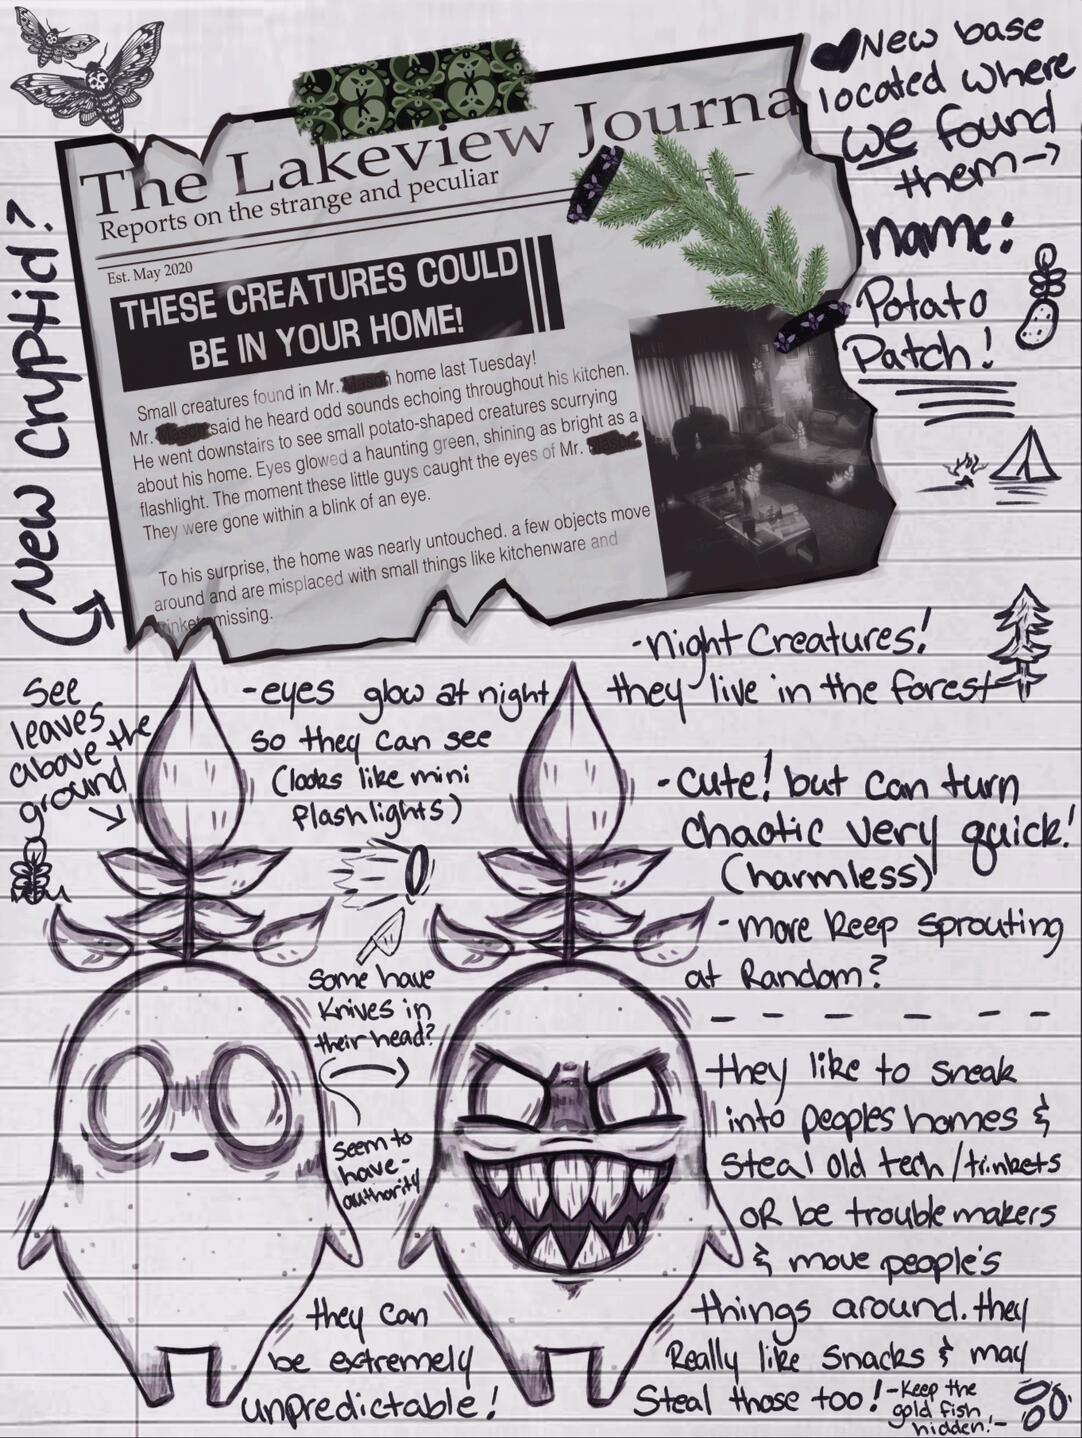 New Cryptid?
The Lakeview Journa
Reports on the strange and peculiar
Est. May 2020
THESE CREATURES COULD
BE IN YOUR HOME!
Small creatures found in Mr. Mason home last Tuesday!
Mr. said he heard odd sounds echoing throughout his kitchen.
He went downstairs to see small potato-shaped creatures scurrying
about his home. Eyes glowed a haunting green, shining as bright as a
flashlight. The moment these little guys caught the eyes of Mr.
They were gone within a blink of an eye.
To his surprise, the home was nearly untouched. a few objects move
around and are misplaced with small things like kitchenware and
missing.
New base
located where
we found
them
name:
Potato
Patch!
-night Creatures!
they live in the forest
See
leaves
above the
ground
-eyes glow at night
so they can see
(looks like mini
flashlights)
-Cute! but can turn
chaotic very quick!
(harmless)
-more keep sprouting
at Random?
Some have
Knives in
their head?
Seem to
have-
authority
they like to sneak
into peoples homes &
steal old tech/trinkets
OR be troublemakers
& move people's
things around. they
Really like snacks & may
Steal those too!
-Keep the
gold fish
hidden!-
they can
be extremely
unpredictable!